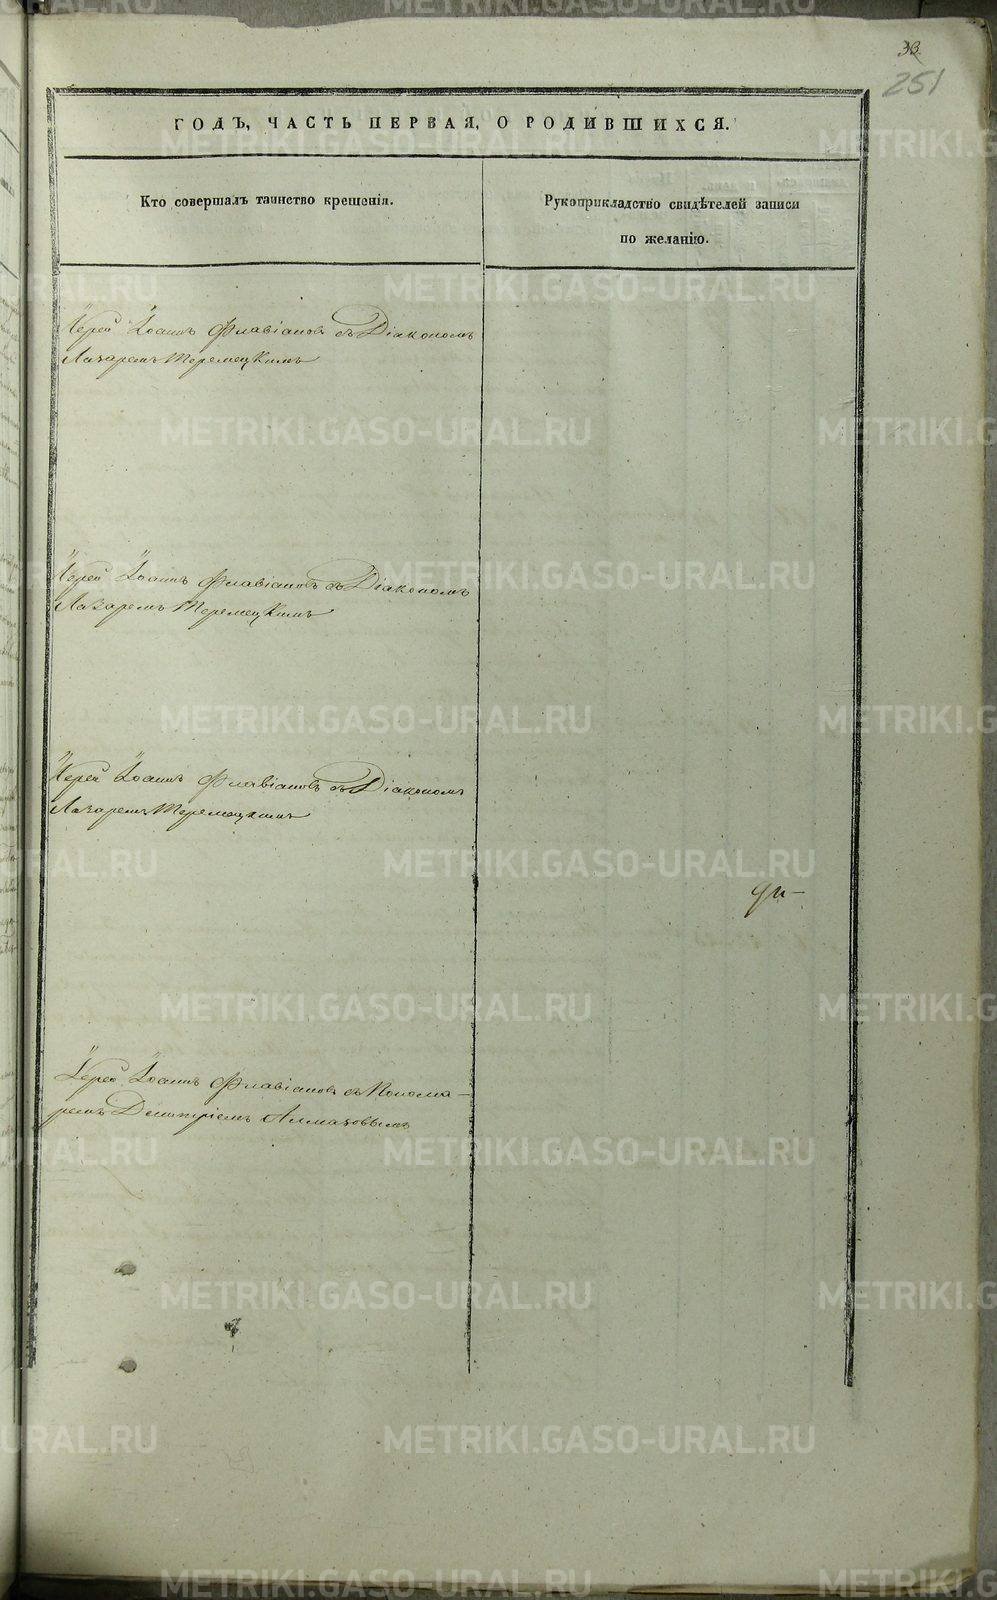 33.
251
ГОДЪ, ЧАСТЬ ПЕРВАЯ, О РОДИВШИХСЯ.
Кто совершалъ таинство крещенія.
Рукоприкладство свидѣтелей записи
по желанію.
Іерей Іоаннъ Флавіановъ съ Діакономъ
Лазаремъ Теремецкимъ
Іерей Іоаннъ Флавіановъ съ Діакономъ
Лазаремъ Теремецкимъ
Іерей Іоаннъ Флавіановъ съ Діакономъ
Лазаремъ Теремецкимъ
Іерей Іоаннъ Флавіановъ съ Понома-
ремъ Димитріемъ Алмазовымъ
METRIKI.GASO-URAL.RU